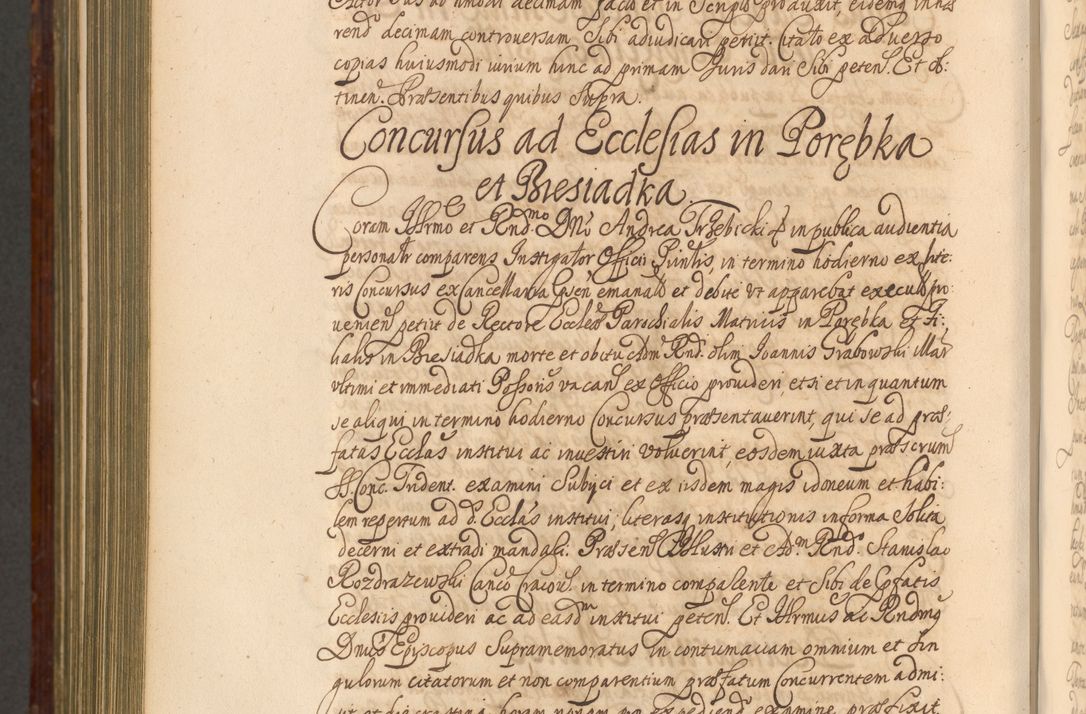 rend decimam controversam Sibi adiudicari petiit. Citato ex adverso
copias huiusmodi iurium hinc ad primam Juris dari Sibi peten. Et ob:
tinen. Præsentibus quibus supra.
Concursus ad Ecclesias in Porębka
et Biesiadka.
Coram Illrmo et Rndmo Dno Andrea Trzebicki in publica audientia
personalr comparens Instigator Officii Puntis, in termino hodierno ex lite:
ris Concursus ex Cancellaria Gsen emanatis et debite ut apparebat executis pro:
venien petiit de Rectore Ecclæ Parochialis Matricis in Porębka et Fi:
lialis in Biesiadka morte et obitu Adm Rnd. olim Joannis Grabowski illar
ultimi et immediati Possoris vacan ex Officio provideri, etsi et in quantum
se aliqui in termino hodierno Concursus præsentaverint, qui se ad præ:
fatas Ecclas institui ac investiri voluerint, eosdem iuxta præscrum
SS. Conc. Trident. examini Subijci et ex iisdem magis idoneum et habi:
lem repertum ad d. Ecclas institui, literasq institutionis in forma Solita
decerni et extradi mandari. Præsen Illustri et Adm Rnd. Stanislao
Rozdrazewski Canco Cracov. in termino compalente et Sibi de Præfatis
Ecclesiis provideri ac ad easdm institui peten. Et Illrmus ac Rndmus
Dnus Episcopus Supramemoratus in contumaciam omnium et Sin
gulorum citatorum et non comparentium præfatum Concurrentem admi: